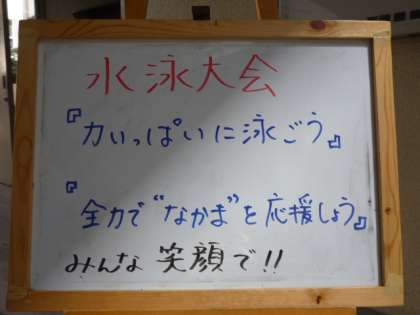 水泳大会
『力いっぱいに泳ごう』
『全力で"なかま"を応援しよう』
みんな笑顔で!!